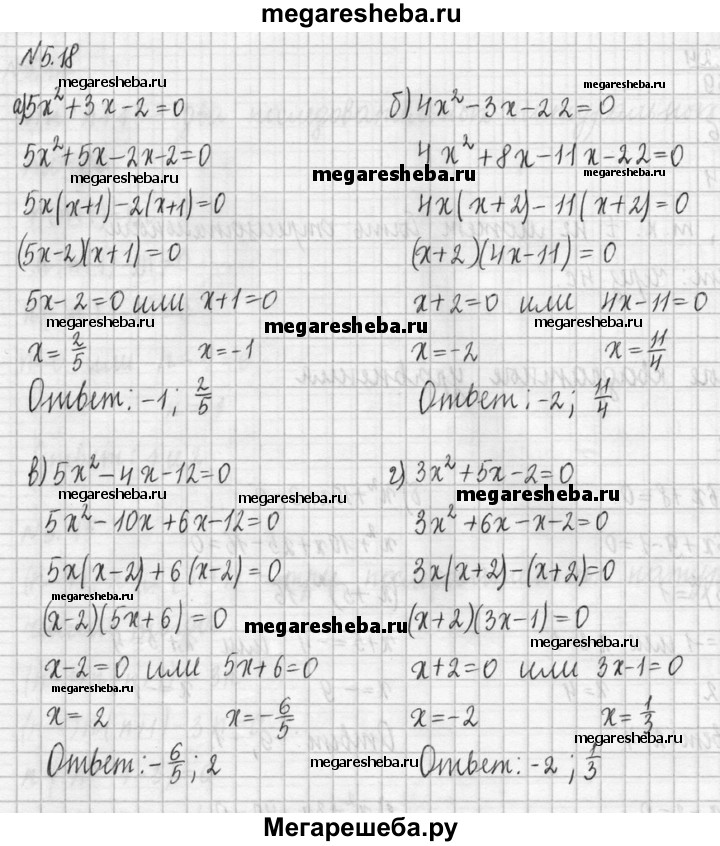 megaresheba.ru
N5.18
megaresheba.ru
megaresheba.ru
а) 5x²+3x-2=0
5x²+5x-2x-2=0
megaresheba.ru
5x(x+1)-2(x+1)=0
(5x-2)(x+1)=0
5x-2=0 или x+1=0
megaresheba.ru
x=2/5 x=-1
Ответ: -1; 2/5
б) 4x²-3x-22=0
4x²+8x-11x-22=0
megaresheba.ru
megaresheba.ru
4x(x+2)-11(x+2)=0
(x+2)(4x-11)=0
x+2=0 или 4x-11=0
megaresheba.ru
megaresheba.ru
x=-2 x=11/4
Ответ: -2; 11/4
в) 5x²-4x-12=0
megaresheba.ru
megaresheba.ru
5x²-10x+6x-12=0
5x(x-2)+6(x-2)=0
megaresheba.ru
(x-2)(5x+6)=0
megaresheba.ru
x-2=0 или 5x+6=0
megaresheba.ru
x=2 x=-6/5
Ответ: -6/5; 2
г) 3x²+5x-2=0
megaresheba.ru
3x²+6x-x-2=0
3x(x+2)-(x+2)=0
(x+2)(3x-1)=0
megaresheba.ru
x+2=0 или 3x-1=0
x=-2 x=1/3
megaresheba.ru
megaresheba.ru
Ответ: -2; 1/3
Мегарешеба.ру